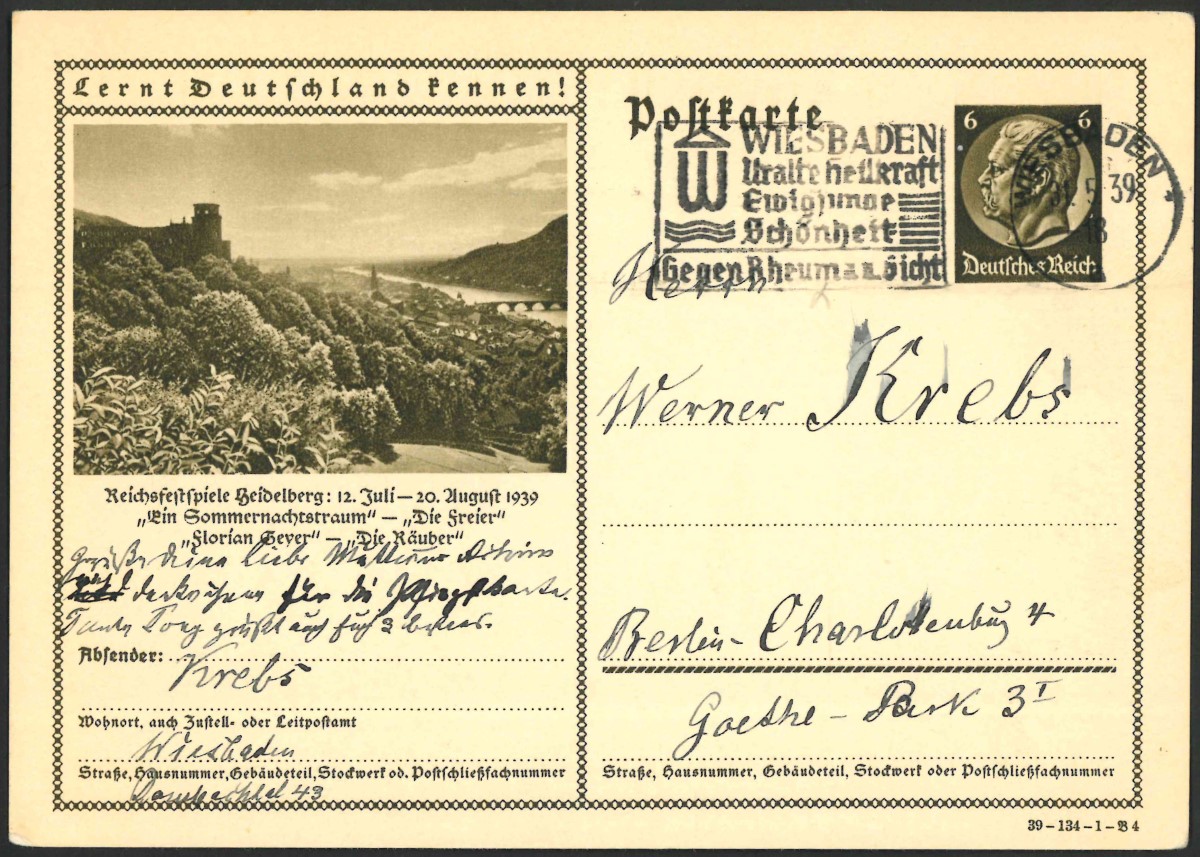 Lernt Deutschland kennen!
Reichsfestspiele Heidelberg: 12. Juli — 20. August 1939
„Ein Sommernachtstraum" — „Die Freier"
„Florian Geyer" — „Die Räuber"
Grüße Deine liebe Mutter
für die
Tante grüßt auch
Absender:
Krebs
Wohnort, auch Zustell- oder Leitpostamt
Wiesbaden
Straße, Hausnummer, Gebäudeteil, Stockwerk od. Postschließfachnummer
43
Postkarte
WIESBADEN
Uralte Heilkraft
Ewigjunge
Schönheit
Gegen Rheuma u. Gicht
6 6
Deutsches Reich
WIESBADEN
31. 5. 39
18
Herrn
Werner Krebs
Berlin-Charlottenburg 4
Goethe-Park 3 I
Straße, Hausnummer, Gebäudeteil, Stockwerk oder Postschließfachnummer
39-134-1-B 4